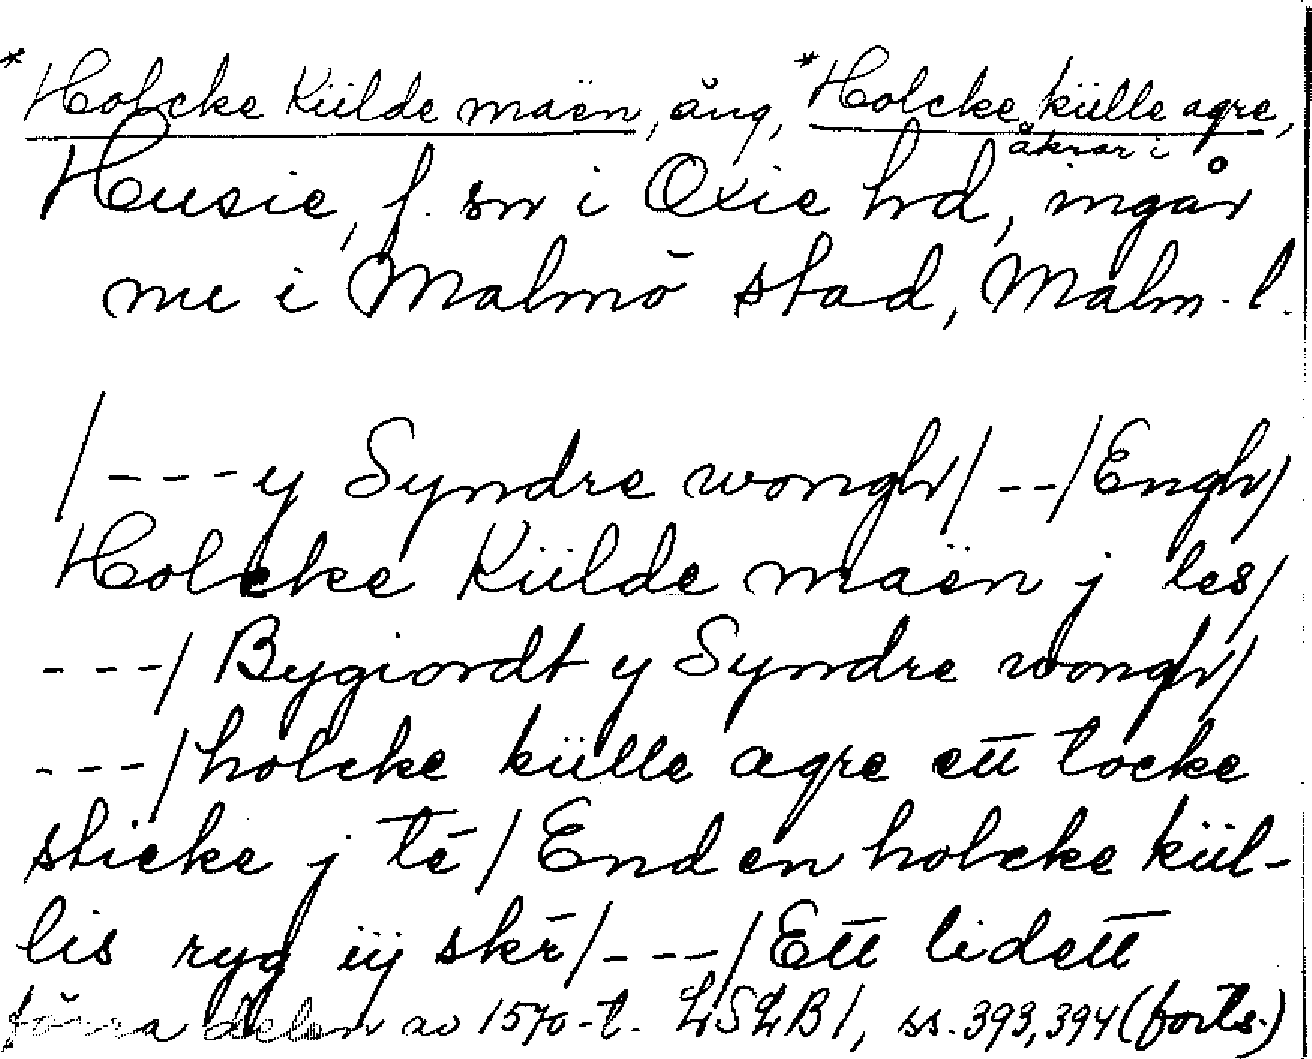 *Holcke Küilde maën, äng, *Holcke külle agre,
åkrar i
Husie, f. sn i Oxie hd, ingår
nu i Malmö stad, Malm. l.
/---y Syndre wongh/--/Engh/
Holcke Küilde maën j les/
---/Bygiordt y Syndre wongh/
---/holcke külle agre ett tocke
sticke j té/Enden holcke kül-
lis ryg iij skē/---/Ett lidett
förra delen av 1570-t. LSLB1, ss. 393, 394 (forts.)